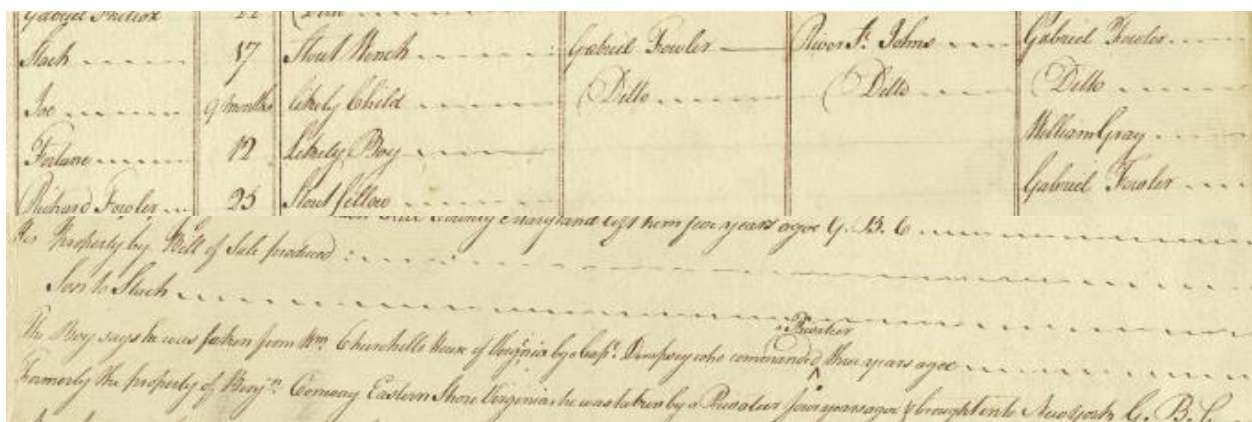 Slach 17 Stout Wench Gabriel Fowler River St. Johns Gabriel Fowler
Joe 9 months likely Child Ditto Ditto Ditto
Fortune 12 Likely Boy William Gray
Richard Fowler 25 Stout fellow Gabriel Fowler
County Maryland left him four years agoe G. B. C
His Property by Bill of Sale produced
Son to Slach
Privateer
The Boy says he was taken from Wm. Churchills House of Virginia by a Capt. Dempsey who commanded three years agoe
Formerly the property of Benjn. Conway Eastern Shore Virginia, he was taken by a Privateer four years agoe & brought into New York G. B. C.